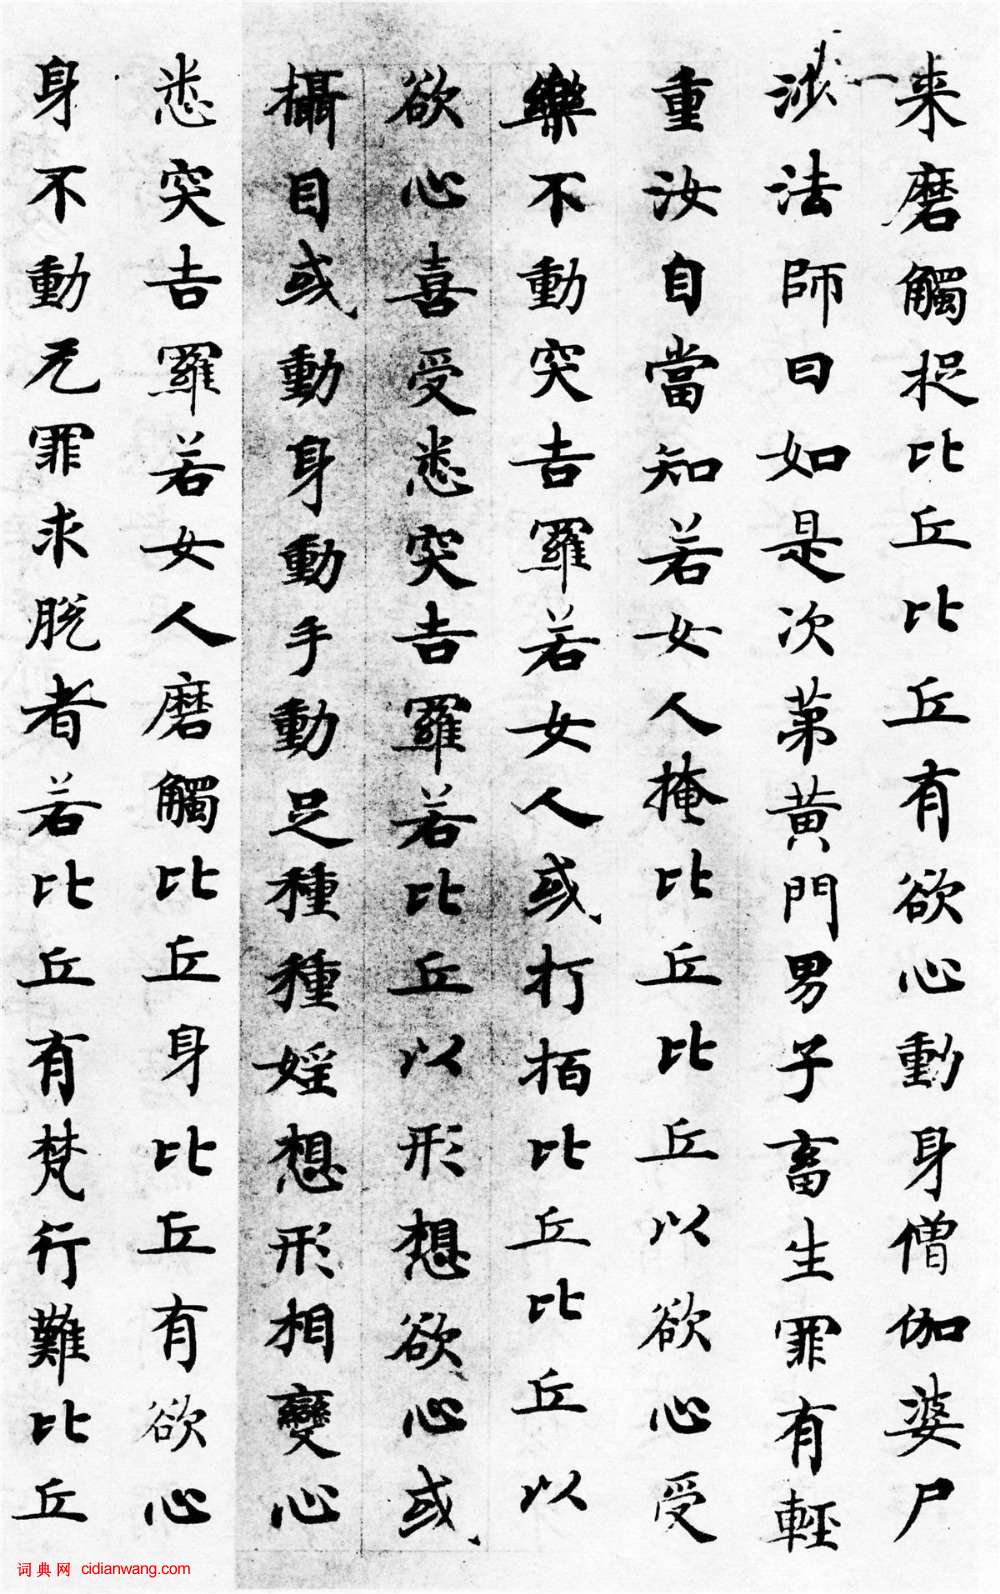 来磨觸捉比丘比丘有欲心動身僧伽婆尸
沙法師曰如是次第黄門男子畜生罪有輕
重汝自當知若女人掩比丘比丘以欲心受
樂不動突吉羅若女人或打拍比丘比丘以
欲心喜受悉突吉羅若比丘以形想欲心或
攝目或動身動手動足種種婬想形相變心
悉突吉羅若女人磨觸比丘身比丘有欲心
身不動无罪求脱者若比丘有梵行難比丘
词典网 cidianwang.com